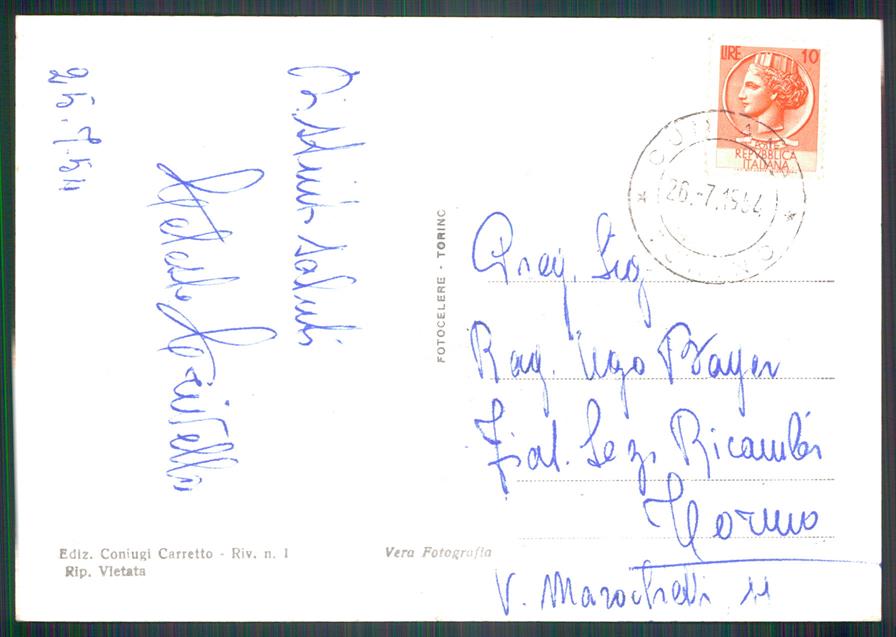 25.7.54
Distinti saluti
LIRE 10
POSTE
REPVBBLICA
ITALIANA
26.-7.1954
TORINO
FOTOCELERE - TORINO
Preg. Sig
Rag. Ugo Bayer
Fiat. Sez. Ricambi
Torino
V. Marochetti 11
Ediz. Coniugi Carretto - Riv. n. 1
Rip. Vietata
Vera Fotografia